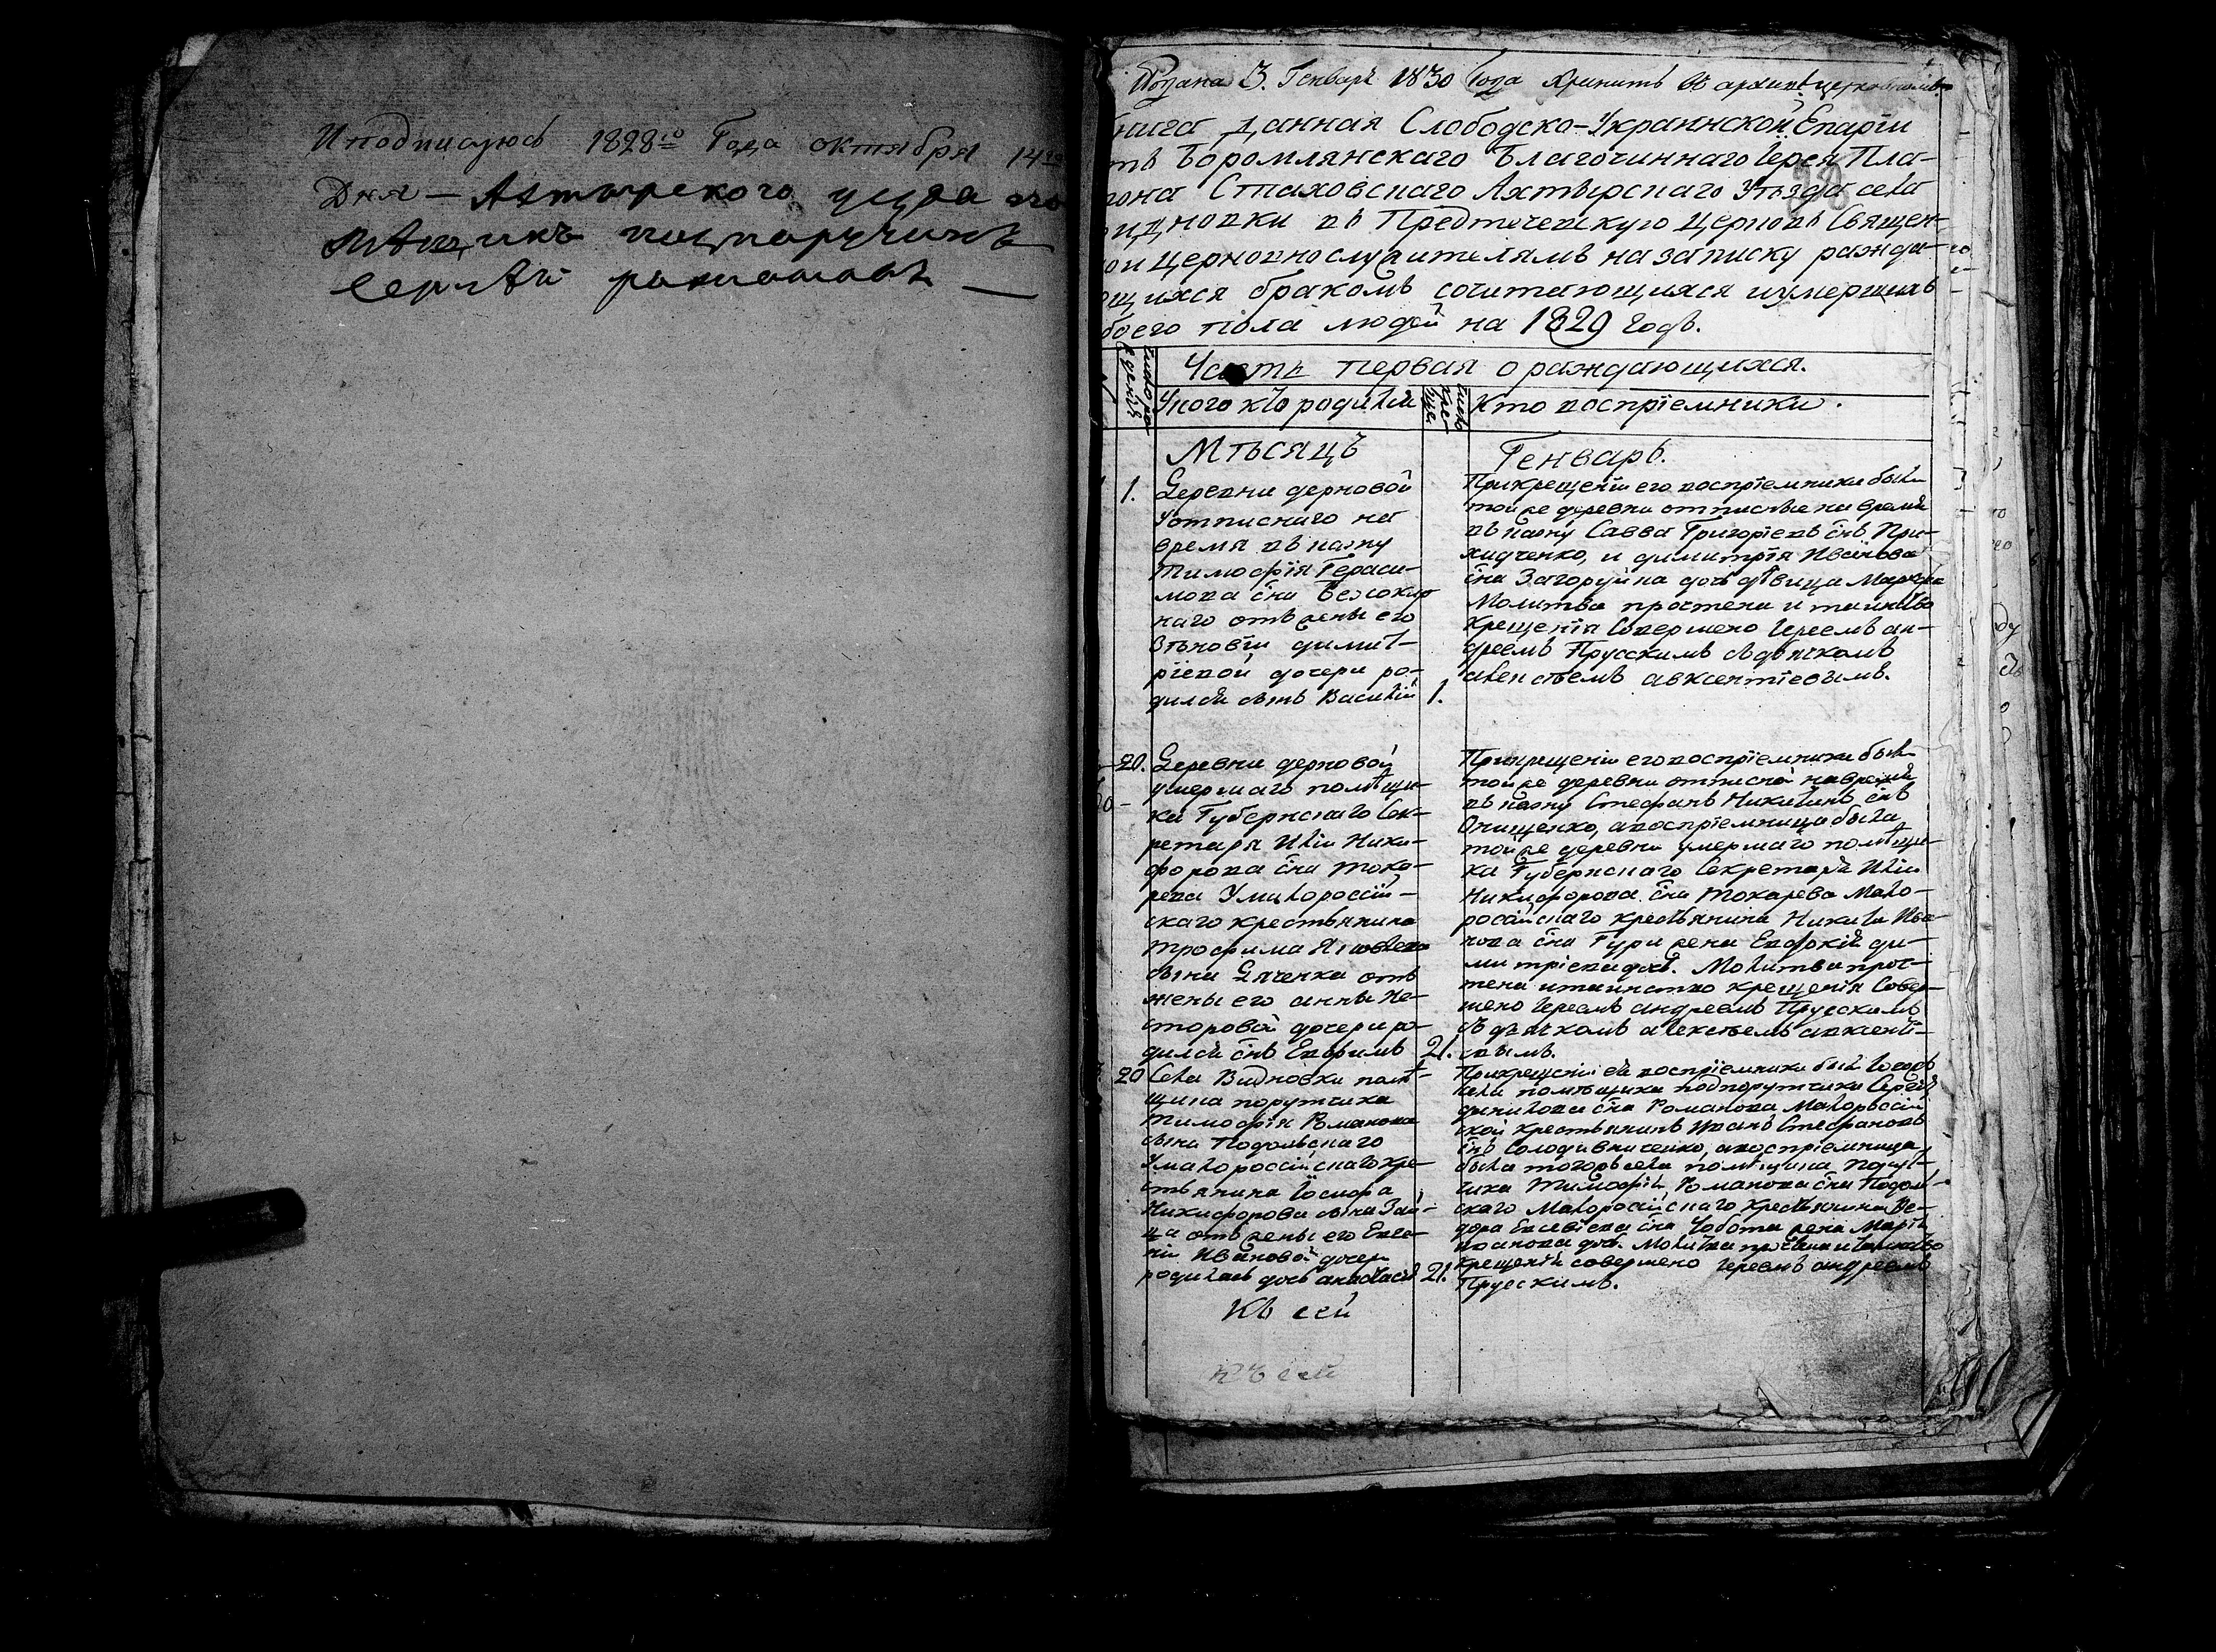 И подписуюсь 1828го Года октября 14го
Дня — Ахтырского уезда
подпоручикъ
Сергѣй романовъ —
Подана 3. Генваря 1830 Года хранить въ архивѣ церковномъ.
нига Данная Слободско-Украинской Епархіи
тъ Боромлянскаго Благочиннаго Іерея Пла-
тона Стаховскаго Ахтырскаго Уѣзда села
идновки въ Предтечевскую Церковь Священ-
но и церковнослужителямъ на записку ражда-
ющихся бракомъ сочитающихся и умершихъ
боего пола людей на 1829 Годъ.
Часть первая о раждающихся.
У кого кто родился
число крещ
Кто воспріемники.
Мѣсяцъ
Генварь.
1. Деревни дерновой
У отписнаго на
время въ казну
Тимофія Гераси-
мова сна Безсокир
наго отъ жены его
Зѣновіи димит-
ріевой дочери ро-
дился сынъ Василій 1.
При крещеніи его воспріемники были
той же деревни отписные на время
въ казну Савва Григоріевъ снъ При-
хидченко, и димитрія Иванова
сна Загоруйка дочь дѣвица Марфа
Молитва прочтена и таинство
Крещенія Совершено Іереемъ ан-
дреемъ Прусскимъ съ дьячкомъ
алексѣемъ авксентіевимъ.
20. Деревни дерновой
умершаго помѣщи-
ка Губернскаго Сек-
ретаря Иліи Ники-
форова сна Тока-
рева У малоросій-
скаго крестьянина
Трофима Яковлева
сына Дяченка отъ
жены его анны Не-
сторовой дочери ро-
дился снъ Евфимъ 21.
При крещеніи его воспріемники былъ
той же деревни отписной на время
въ казну Стефанъ Никитинъ снъ
Онищенко, а воспріемница была
той же деревни умершаго помѣщи-
ка Губернскаго Секретаря Иліи
Никифорова сна Токарева Мало-
российскаго крестьянина Никиты Ива-
нова сна Гури жена Евдокія ди-
митріева дочь. Молитва проч-
тена и таинство крещенія Совер-
шено Іереемъ андреемъ Прусскимъ
съ дьячкомъ алексѣемъ авксенті-
евымъ.
20 Села Видновки помѣ-
щика порутчика
Тимофія Романова
сына Подольскаго
У малороссійскаго кре-
стьянина Іосифа
Никифорова сына Зай-
ца отъ жены его Евге-
ніи Ивановой дочери
родилась дочь анастасія 21.
При крещеніи ей воспріемники былъ тогожъ
села помѣщика подпорутчика Сергѣя
данилова сна Романова Малоросій-
ской крестьянинъ Иванъ Стефановъ
снъ Солодивниченко, а воспріемница
была тогожъ села помѣщика порут-
чика Тимофія Романова сна Подоль-
скаго Малоросійскаго крестьянина Ѳе-
дора сна Чобота жена Марія
Иванова дочь. Молитва прочтена и таинство
Крещенія совершено Іереемъ андреемъ
Прусскимъ.
Къ сей
Къ сей